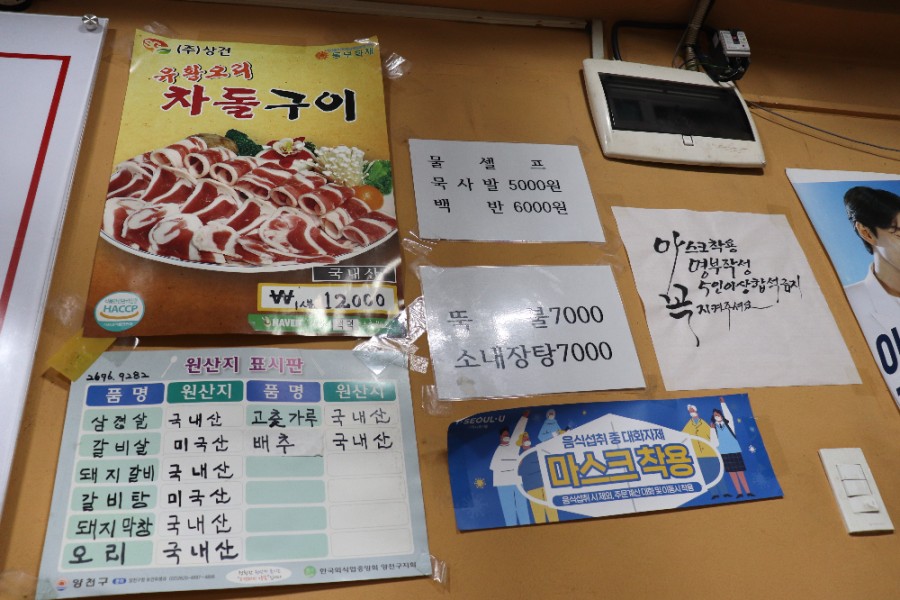 (주)상건
유황오리
차돌구이
국내산
₩ 1人분 12,000
HACCP
물 셀 프
묵사발 5000원
백 반 6000원
뚝 불7000
소내장탕7000
마스크착용
명부작성
5인이상합석금지
꼭 지켜주세요
원산지 표시판
2696.9282
품 명 원산지 품 명 원산지
삼겹살 국내산 고춧가루 국내산
갈비살 미국산 배추 국내산
돼지갈비 국내산
갈비탕 미국산
돼지막창 국내산
오리 국내산
양천구
한국외식업중앙회 양천구지회
SEOUL
음식섭취 중 대화자제
마스크 착용
음식섭취 시 제외, 주문·계산·대화 및 이동시 착용